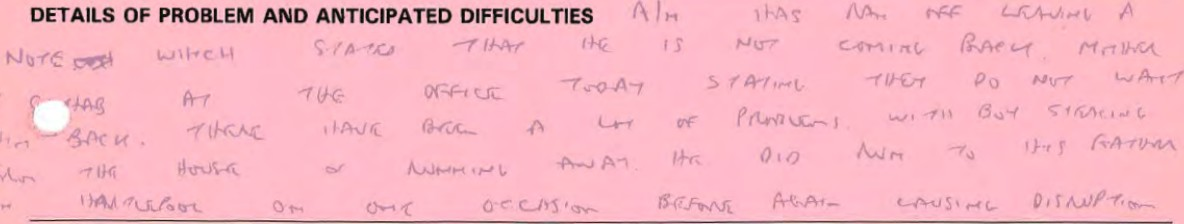 DETAILS OF PROBLEM AND ANTICIPATED DIFFICULTIES A/M HAS RAN OFF LEAVING A
NOTE WHICH STATES THAT HE IS NOT COMING BACK. MOTHER
AT THE OFFICE TODAY STATING THEY DO NOT WANT
BACK. THERE HAVE BEEN A LOT OF PROBLEMS WITH BOY STEALING
THE HOUSE & RUNNING AWAY. HE DID RUN TO HIS FATHER
HARTLEPOOL ON ONE OCCASION BEFORE AGAIN CAUSING DISRUPTION